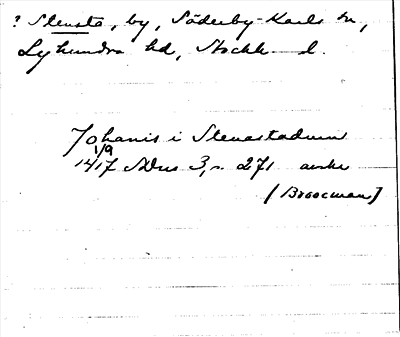 ? Stensta, by, Söderby-Karls sn,
Lyhundra hd, Stockh. l.
Johanis i Stenastadum
1/9
1417 SDns 3, n. 271 avskr
[Broocman]